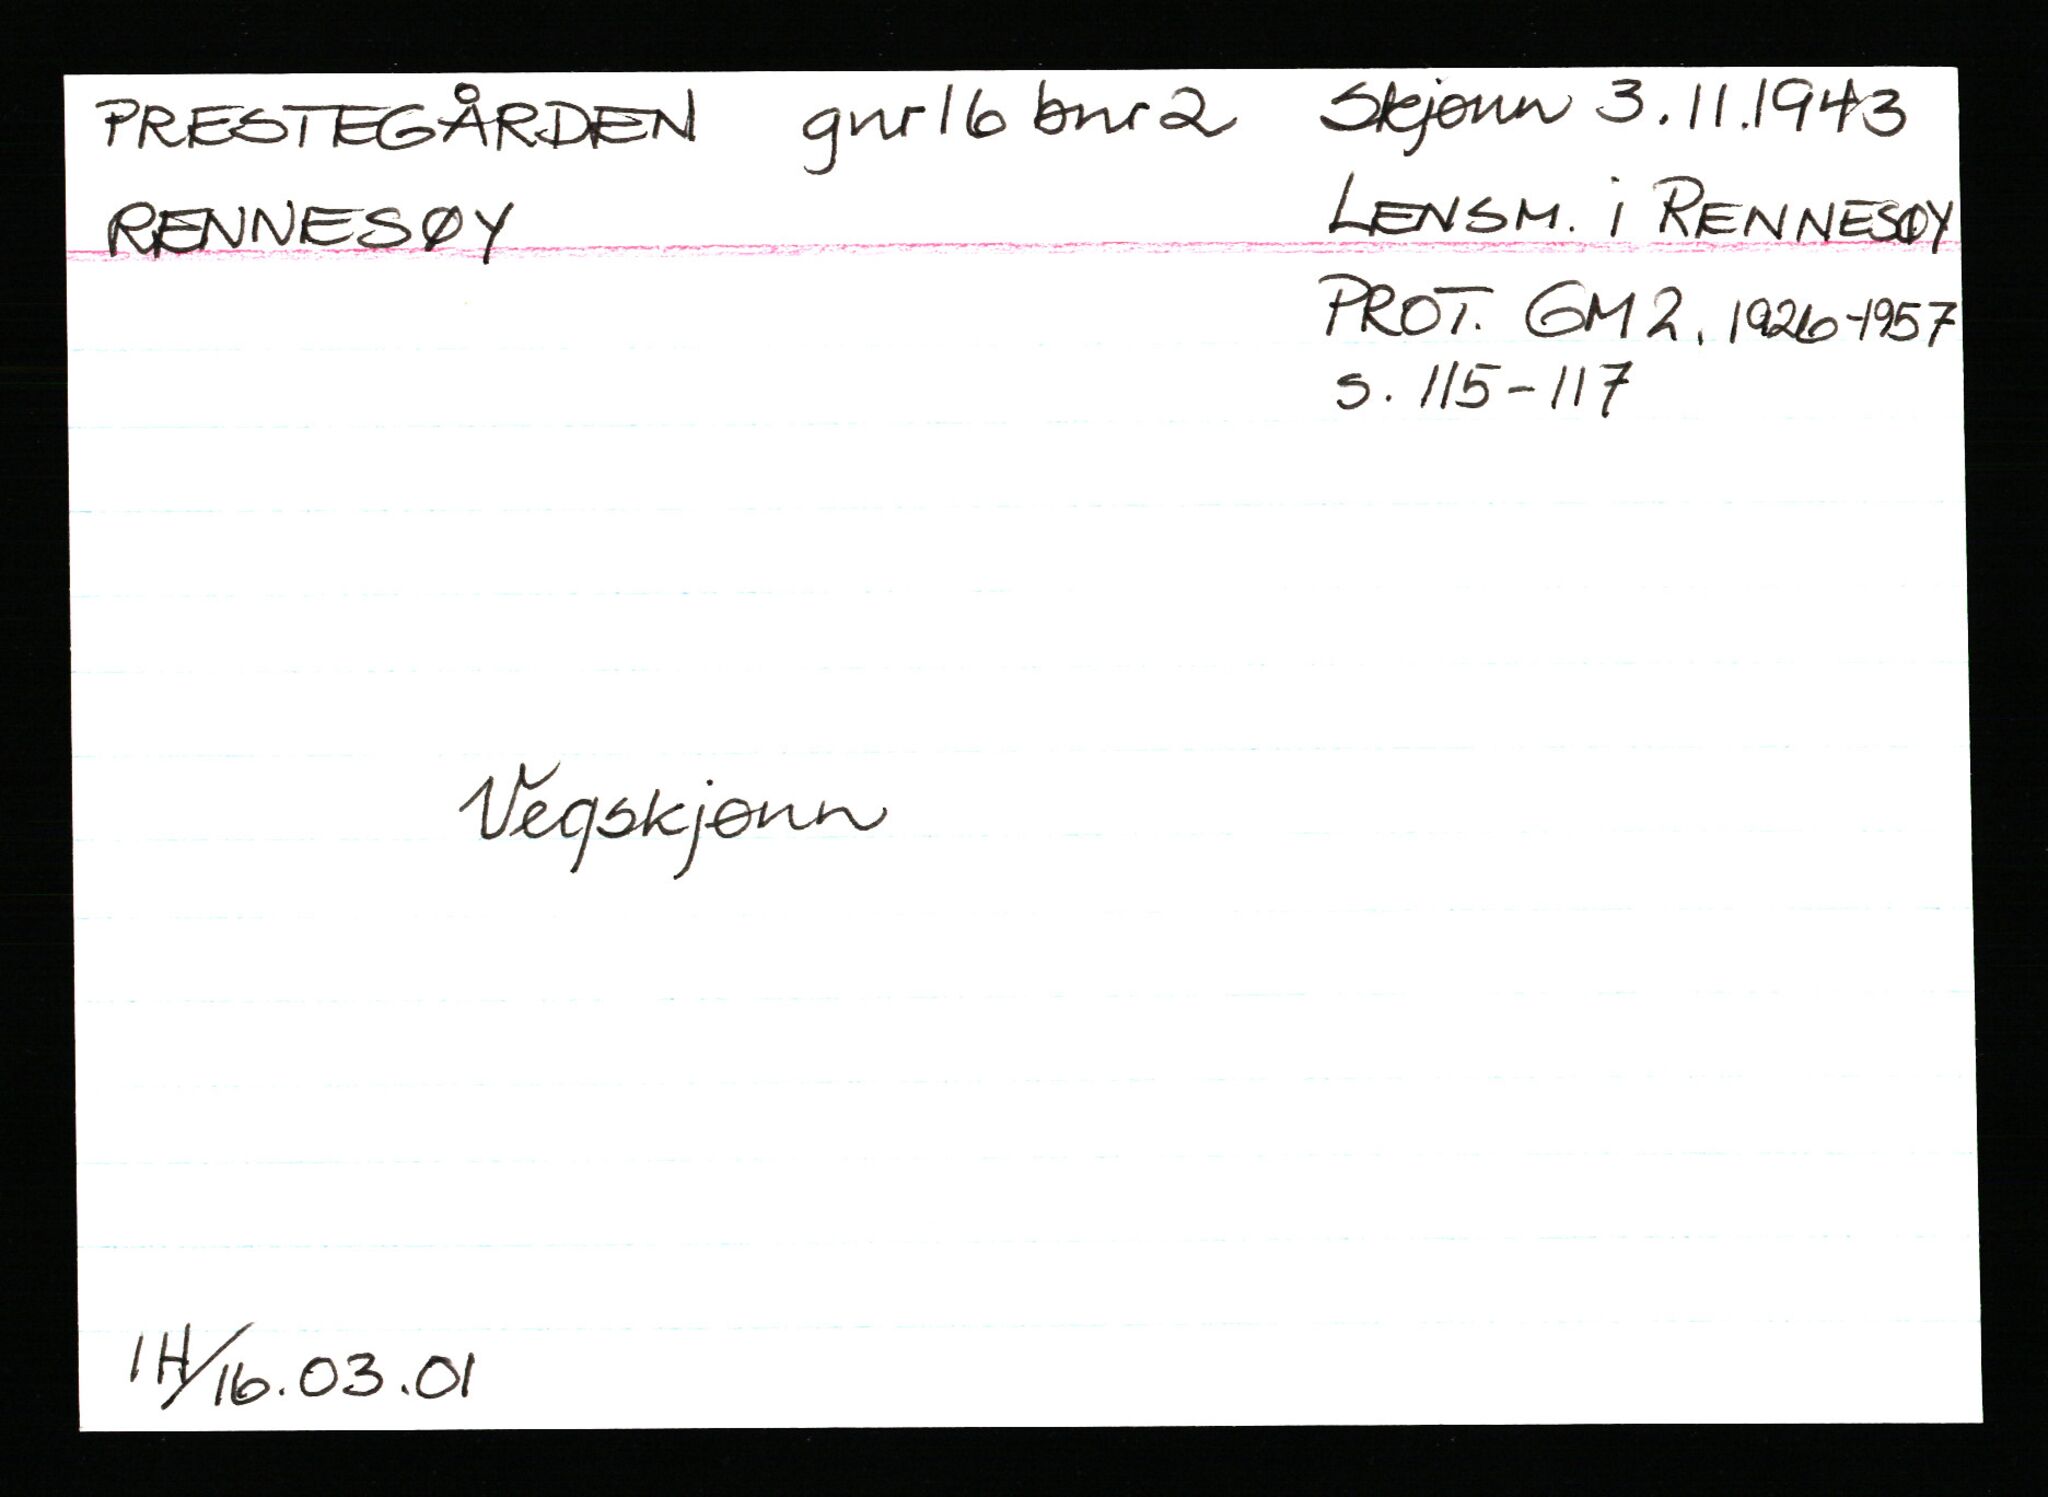 PRESTEGÅRDEN gnr 16 bnr 2 Skjønn 3.11.1943
RENNESØY LENSM. i RENNESØY
PROT. GM 2, 1926-1957
s. 115-117
Vegskjønn
IH/16.03.01